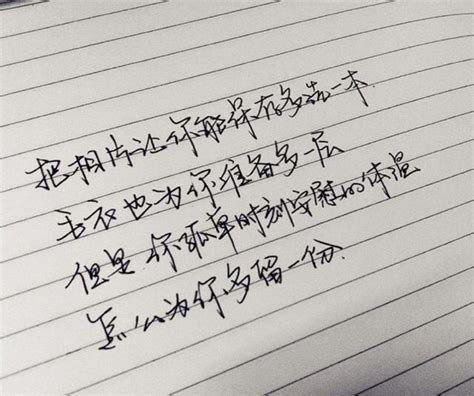 把相片让你能保存多洗一本
毛衣也为你准备多一层
但是你孤单时刻安慰的体温
怎么为你多留一份